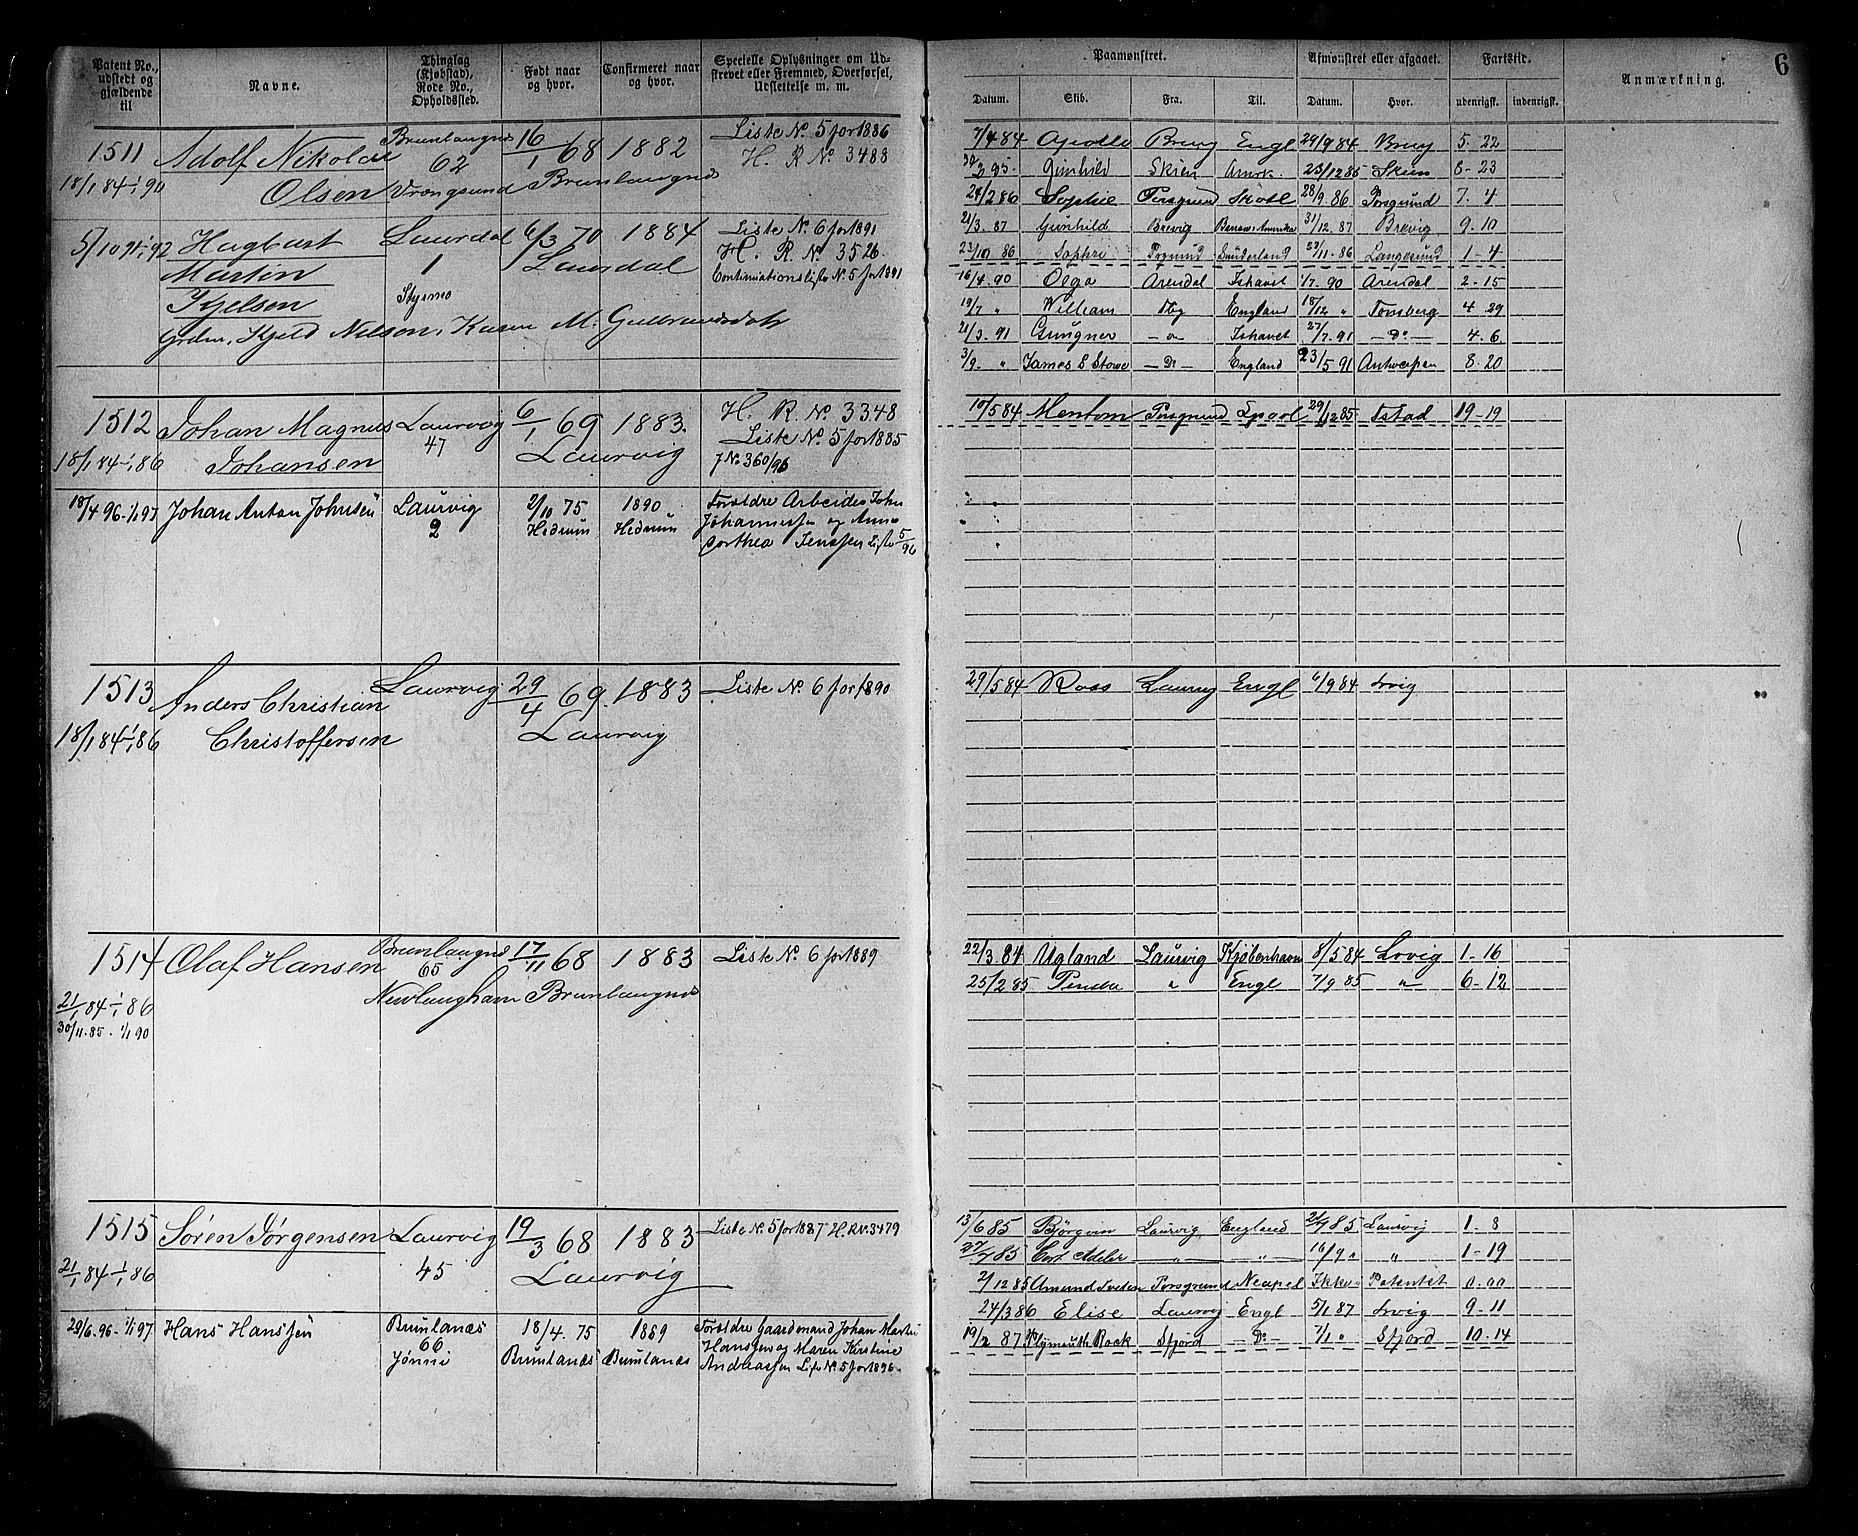 Patent No., udstedt og gjældende til
Navne.
Thinglag (Kjøbstad), Rode No., Opholdssted.
Født naar og hvor.
Confirmeret naar og hvor.
Specielle Oplysninger om Udskrevet eller Fremmed, Overførsel, Udslettelse m. m.
Paamønstret.
Afmønstret eller afgaaet.
Fartstid.
Anmærkning.
6
Datum. Skib. Fra. Til. Datum. Hvor. udenrigsk. indenrigsk.
1511 Adolf Nikolai Brunlangnes 16/1 68 1882 Liste No. 5 for 1886
62 H. R No 3488
18/1 84 1/1 90 Olsen Vrangsund Brunlangnes
5/10 91 1/1 92 Hagbart Laurdal 6/3 70 1884 Liste No. 6 for 1891
Martin 1 Laurdal H. R. No. 3526.
Kjelsen Styrmo Continuationsliste No. 5 for 1891
Kjeld Nelson, Karen M. Gulbrandsdatr
7/4 84 Brevig Engl 29/9 84 Brevig 5 - 22
Gunhild Skien Amrk. 23/12 85 Skien 8 - 23
24/2 86 Sophie Porsgrund Skotl 28/9 86 Porsgrund 7 - 4
21/3. 87 Gunhild Brevig 31/12. 87 Brevig 9 - 10
23/10 86 Sophie Sunderland 23/11 - 86 Langesund 1 - 4
16/4. 90 Olga Arendal Ishavet 1/7. 90 Arendal 2 - 15
19/7 " William Tbg England 18/12 " Tonsberg 4 - 29
21/3. 91 Gungner - " - Ishavet 27/7. 91 - Do - 4 - 6
3/9. " James E Stowe - Do - England 23/5 91 Antwerpen 8 - 20
1512 Johan Magnus Laurvig 6/1 69 1883. H. R No. 3348
47 Laurvig Liste No. 5 for 1885
18/1 84 - 1/1 86 Johansen 7 No. 360/96
10/5 84 Mentom Porsgrund 29/12 85 19 - 19
18/4 96 - 1/1 97 Johan Anton Johnsen Laurvig 2/10 75 1890 Forældre Arbeider John
2 Hedrum Hedrum Johannessen og Anne
Dorthea Jenssen Liste 5/96
1513 Anders Christian Laurvig 29/4 69. 1883 Liste No. 6 for 1890
18/1 84 - 1/1 86 Christoffersen Laurvig
29/5 84 Ross Laurvig Engl 6/9 84 Lrvig
1514 Olaf Hansen Brunlangnes 17/11 68 1883 Liste No. 6 for 1889
65
Nevlunghavn Brunlangnes
21/1 84 - 1/1 86
30/11. 85. 1/1 90
22/3. 84 Ugland Laurvig Kjøbenhavn 8/5 84 Lrvig 1 - 16
25/2 85 Penda " Engl 7/9 85 " 6 - 12
1515 Søren Jørgensen Laurvig 19/3 68 1883 Liste No. 5 for 1887 H. R No. 3479
21/1 84 - 1/1 86 45 Laurvig
13/6 85 Bjørgvin Laurvig England 21/7 85 Laurvig 1 - 8
27/7 85 Cort Adeler " " 16/9 " " 1 - 19
2/12 85 Amund Porsgrund Neapel Ikke Patentet 0. 00
24/3 86 Elise Laurvig Engl 5/1 87 Lrvig 9 - 11
19/2 87 Plymouth Rock Sfjord - Do - 7/1 " Sfjord 10 - 14
29/6. 96 - 1/1 97 Hans Hanssen Brunlanæs 18/4. 75 1889 Forældre Gaardmand Johan Martin
66 Hanssen og Maren Kirstine
Brunlanæs Brunlanæs Andreassen Liste No. 5 for 1896.